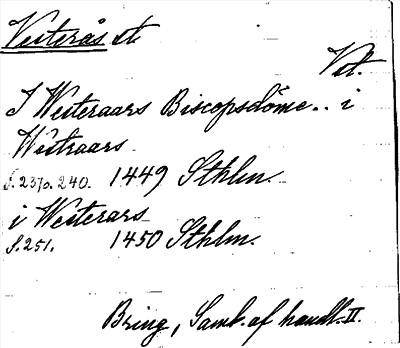 Vesterås st.
Vst.
I Westeraars Biscopsdöme.. i
Westraars
s. 237o. 240. 1449 Sthlm.
i Westerars
s. 251. 1450 Sthlm.
Bring, Saml. af handl. II.